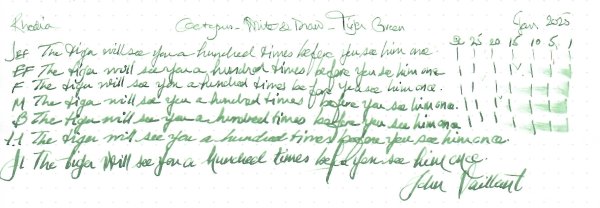 Rhodia Octopus Write & Draw - Tiger Green Jan. 2025
30 25 20 15 10 5 1
JEF The tiger will see you a hundred times before you see him once.
EF The tiger will see you a hundred times before you see him once
F The tiger will see you a hundred times before you see him once.
M The tiger will see you a hundred times before you see him once.
B The tiger will see you a hundred times before you see him once
1.1 The tiger will see you a hundred times before you see him once.
The tiger will see you a hundred times before you see him once.
John Vaillant